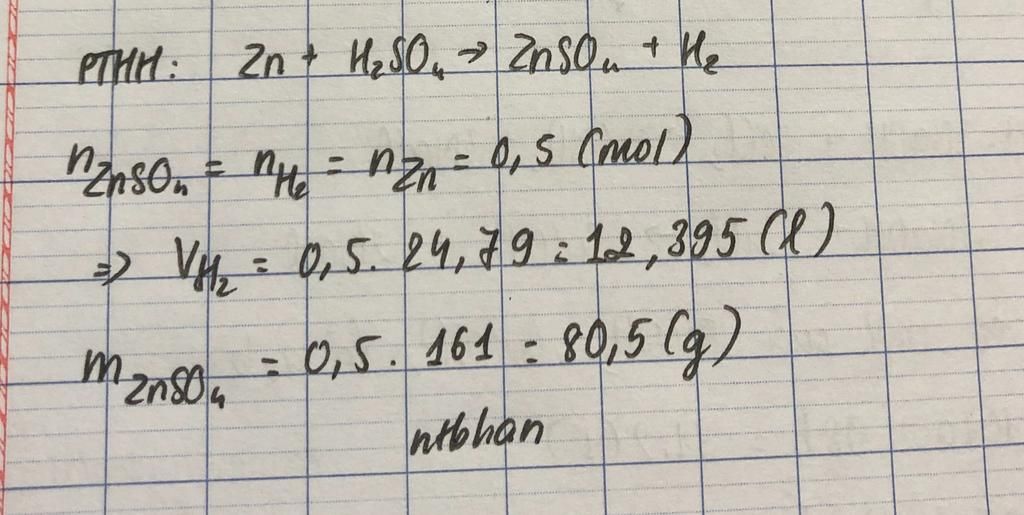 PTHH: Zn + H₂SO₄ → ZnSO₄ + H₂
nZnSO₄ = nH₂ = nZn = 0,5 (mol)
=> VH₂ = 0,5. 24,79 = 12,395 (l)
mZnSO₄ = 0,5. 161 = 80,5 (g)
ntbhan